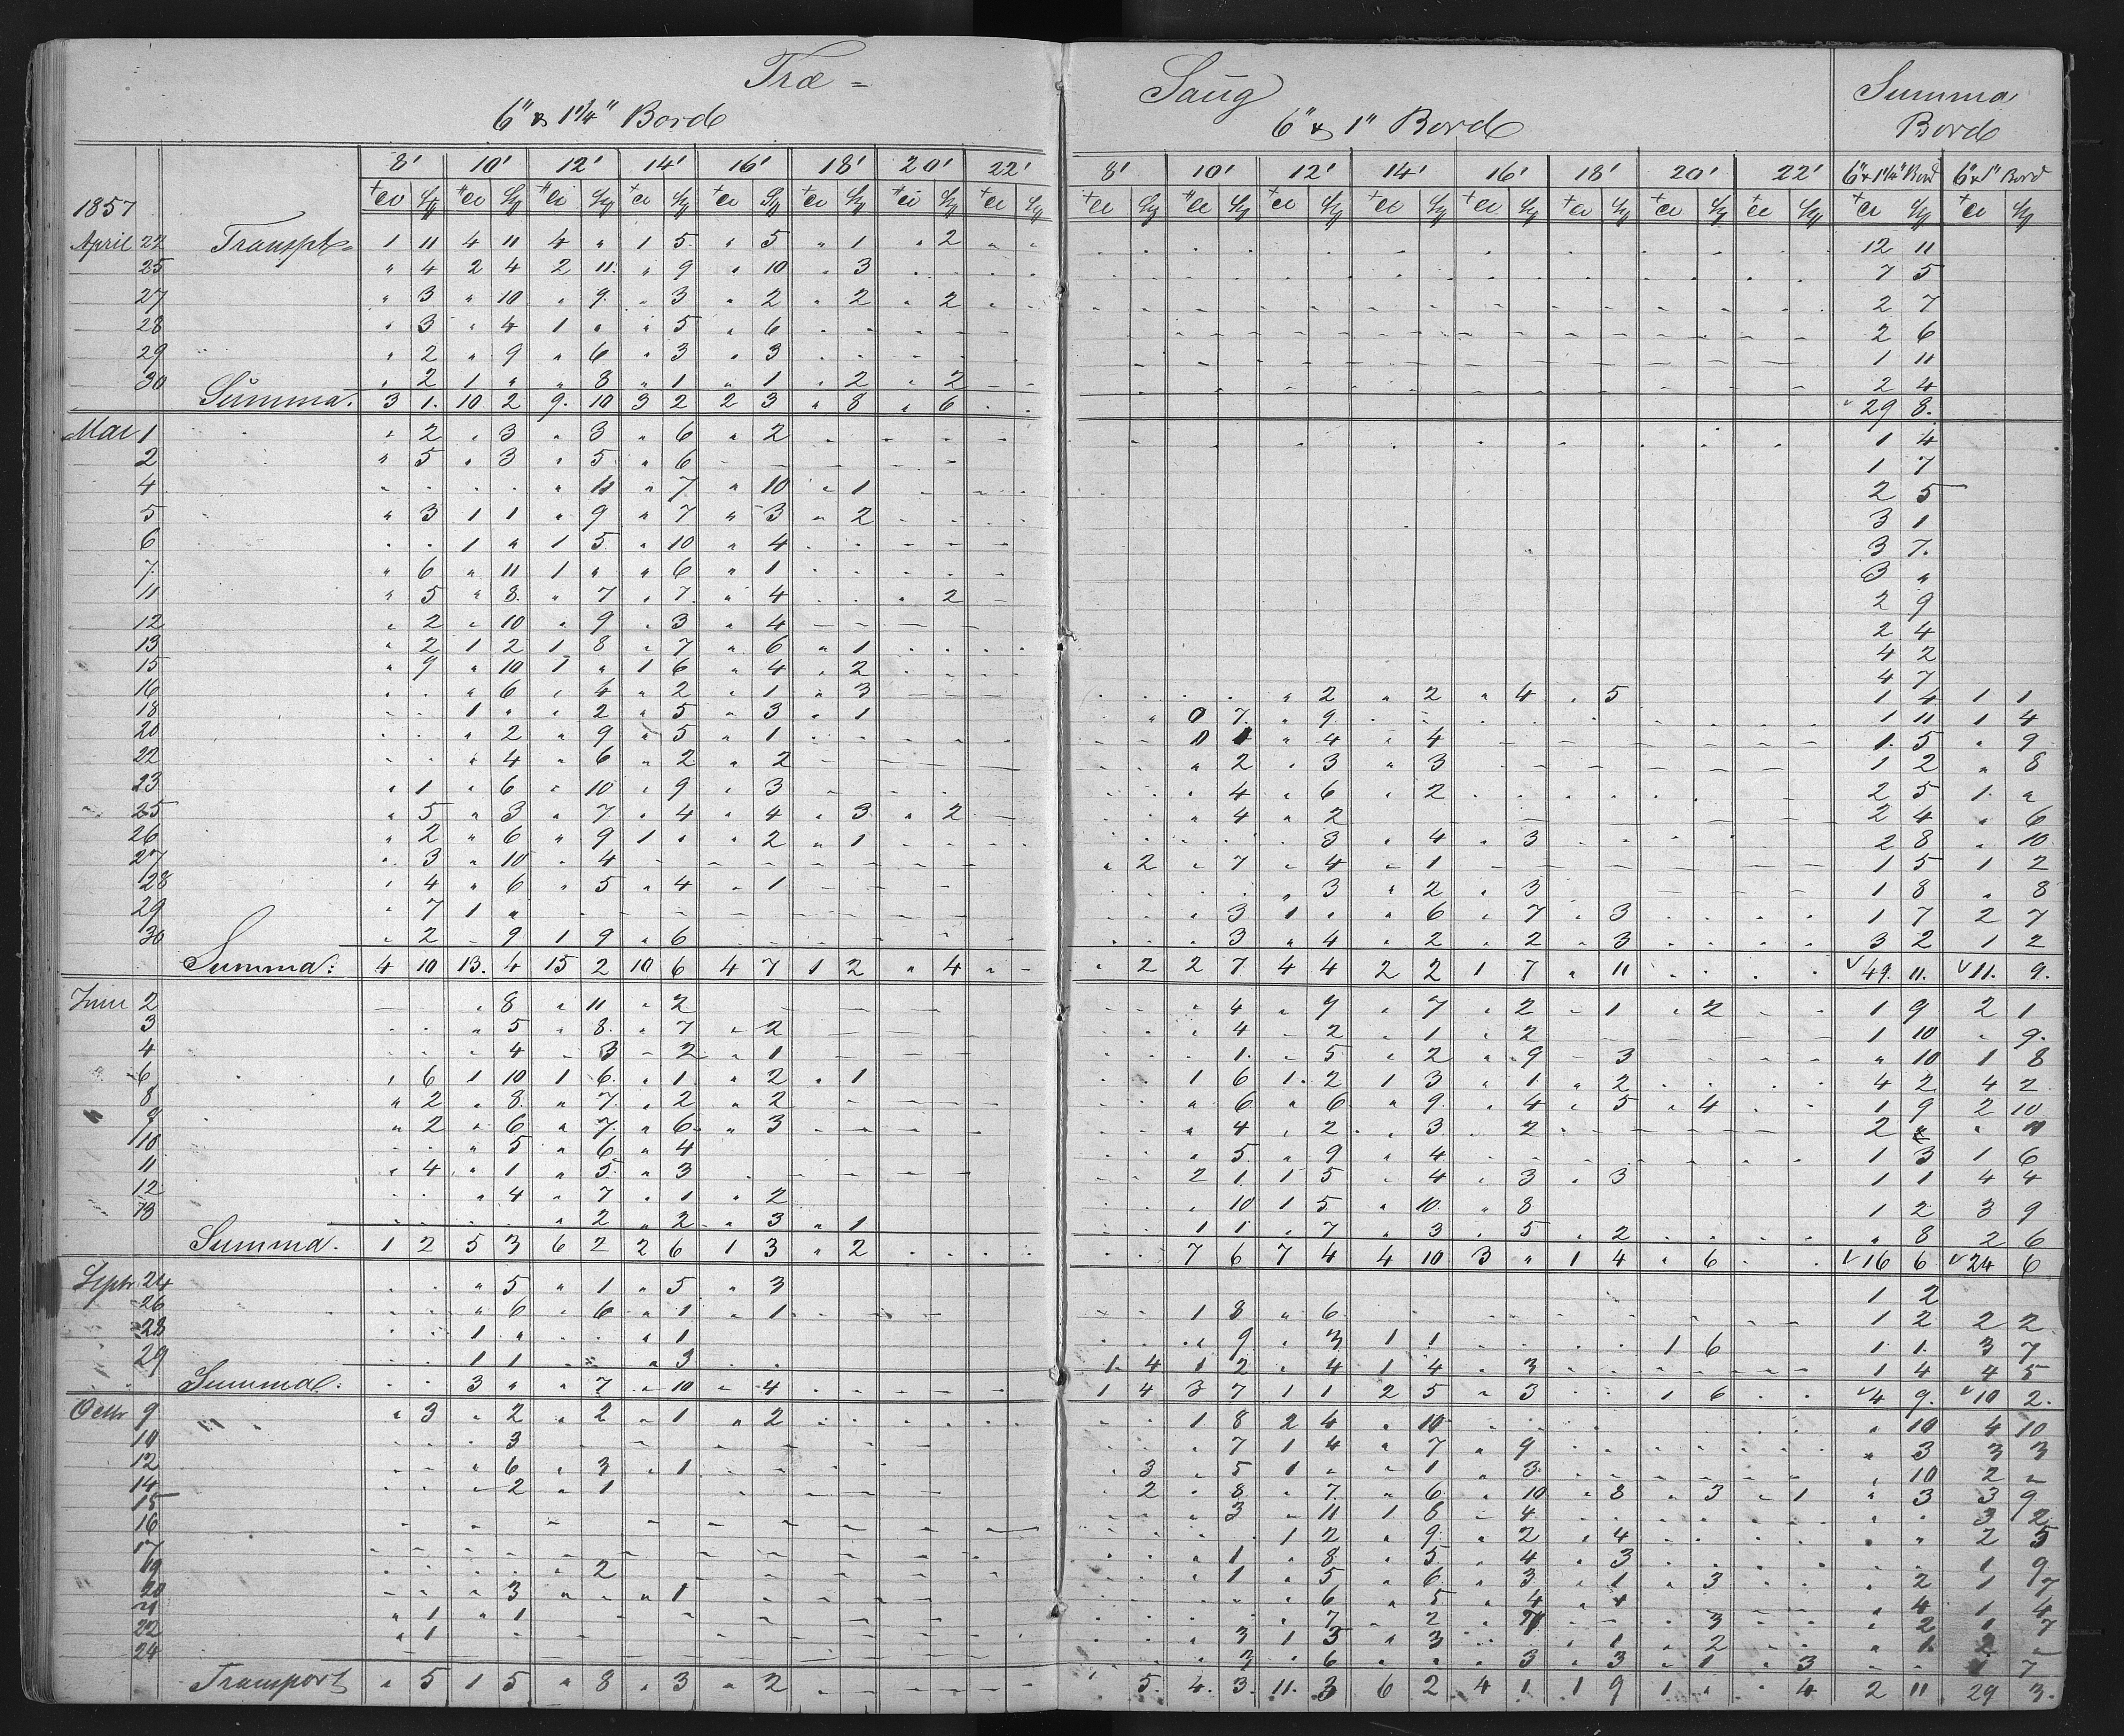 Træ = Saug Summa
6" & 1¼" Bord 6" & 1" Bord Bord
8' 10' 12' 14' 16' 18' 20' 22' 8' 10' 12' 14' 16' 18' 20' 22' 6" & 1¼" Bord 6" & 1" Bord
1857
April 22 Transpt= 1 11 4 11 4 " 1 5 " 5 " 1 " 2 " " 12 11
25 " 4 2 4 2 11 " 9 " 10 " 3 7 5
27 " 3 " 10 " 9 " 3 " 2 " 2 " 2 2 7
28 " 3 " 4 1 " " 5 " 6 2 6
29 " 2 " 9 " 6 " 3 " 3 1 11
30 " 2 1 " " 8 " 1 " 1 " 2 " 2 2 4
Summa. 3 1. 10 2 9. 10 3 2 2 3 " 8 " 6 29 8.
Mai 1 " 2 " 3 " 3 " 6 " 2 1 4
2 " 5 " 3 " 5 " 6 1 7
4 " 11 " 7 " 10 " 1 2 5
5 " 3 1 1 " 9 " 7 " 3 " 2 3 1
6 1 " 1 5 " 10 " 4 3 7.
7 " 6 " 11 1 " " 6 " 1 3 "
11 " 5 " 8 " 7 " 7 " 4 " 2 2 9
12 " 2 " 10 " 9 " 3 " 4 2 4
13 " 2 1 2 1 8 " 7 " 6 " 1 4 2
15 " 9 " 10 1 " 1 6 " 4 " 2 4 7
16 " 6 " 4 " 2 " 1 " 3 " 2 " 2 " 4 " 5 1 4 1 1
18 1 " " 2 " 5 " 3 " 1 0 7 " 9 1 11 1 4
20 " 2 " 9 " 5 " 1 " 4 " 4 1 5 " 9
22 " 4 " 6 " 2 " 2 " 2 " 3 " 3 1 2 " 8
23 " 1 " 6 " 10 " 9 " 3 " 4 " 6 " 2 2 5 1 "
25 " 5 " 3 " 7 " 4 " 4 " 3 " 2 " 4 " 2 2 4 " 6
26 " 2 " 6 " 9 1 " " 2 " 1 3 " 4 " 3 2 8 " 10
27 " 3 " 10 " 4 " 2 " 7 " 4 " 1 1 5 1 2
28 " 4 " 6 " 5 " 4 " 1 " 3 " 2 " 3 1 8 " 8
29 " 7 1 " " 3 1 " " 6 " 7 " 3 1 7 2 7
30 " 2 " 9 1 9 " 6 " 3 " 4 " 2 " 2 " 3 3 2 1 2
Summa: 4 10 13. 4 15 2 10 6 4 7 1 2 " 4 " 2 2 7 4 4 2 2 1 7 " 11 49. 11. 11. 9.
Juni 2 " 8 " 11 " 2 " 4 " 9 " 7 " 2 " 1 " 2 1 9 2 1
3 " 5 " 8 " 7 " 2 " 4 " 2 " 1 " 2 1 10 " 9.
4 " 4 " 3 " 2 " 1 1 " 5 " 2 " 9 " 3 " 10 1 8
6 " 6 1 10 1 6 " 1 " 2 " 1 1 6 1 2 1 3 " 1 " 2 4 2 4 2
8 " 2 " 8 " 7 " 2 " 2 " 6 " 6 " 9 " 4 " 5 " 4 1 9 2 10
9 " 2 " 6 " 7 " 6 " 3 " 4 " 2 " 3 " 2 2 " " 11
10 " 5 " 6 " 4 " 5 " 9 " 4 1 3 1 6
11 " 4 " 1 " 5 " 3 2 1 1 5 " 4 " 3 " 3 1 1 4 4
12 " 4 " 7 " 1 " 2 " 10 1 5 " 10 " 8 1 2 3 9
13 " 2 " 2 " 3 " 1 1 1 " 7 " 3 " 5 " 2 " 8 2 6
Summa. 1 2 5 3 6 2 2 6 1 3 " 2 7 6 7 4 4 10 3 " 1 4 " 6 16 6 24 6
Septr. 24 " 5 " 1 " 5 " 3 1 2
26 " 6 " 6 " 1 " 1 1 8 " 6 1 2 2 2
28 1 " " 1 " 9 " 3 1 1 1 6 1 1. 3 7
29 1 1 " 3 1. 4 1 2 " 4 1 4 " 3 1 4 4 5
Summa: 3 " " 7 " 10 " 4 1 4 3 7 1 1 2 5 " 3 1 6 4 9. 10 2.
Octbr 9 " 3 " 2 " 2 " 1 " 2 1 8 2 4 " 10 " 10 4 10
10 3 " 7 1 4 " 7 " 9 " 3 3 3
12 " 6 " 3 " 1 3 " 5 1 " " 1 " 3 " 10 2 "
14 " 2 " 1 2 " 8 " 7 " 6 " 10 " 8 " 3 " 1 " 3 3 9
15 " 3 " 11 1 6 " 4 3 2
16 1 2 " 9 " 2 " 4 " 2 5
17 " 1 " 8 " 5 " 4 " 3 1 9
19 " 2 " 1 " 5 " 6 " 3 " 1 " 3 " 2 1 7
20 " 3 " 1 " 6 " 5 " 4 " 4 " 4 1 4
21 " 1 " 1 " 7 " 2 " 3 " 2 1 7
22 " 1 " 3 1 5 " 3 " 1 " 2 " 1. 2 "
24 3 " 6 " 3 " 3 " 1 " 3 1 7
Transport " 5 1 5 " 8 " 3 " 2 5. 4. 3. 11. 3 6 2 4 1 1 9 1 " 4 2 11 29 3.